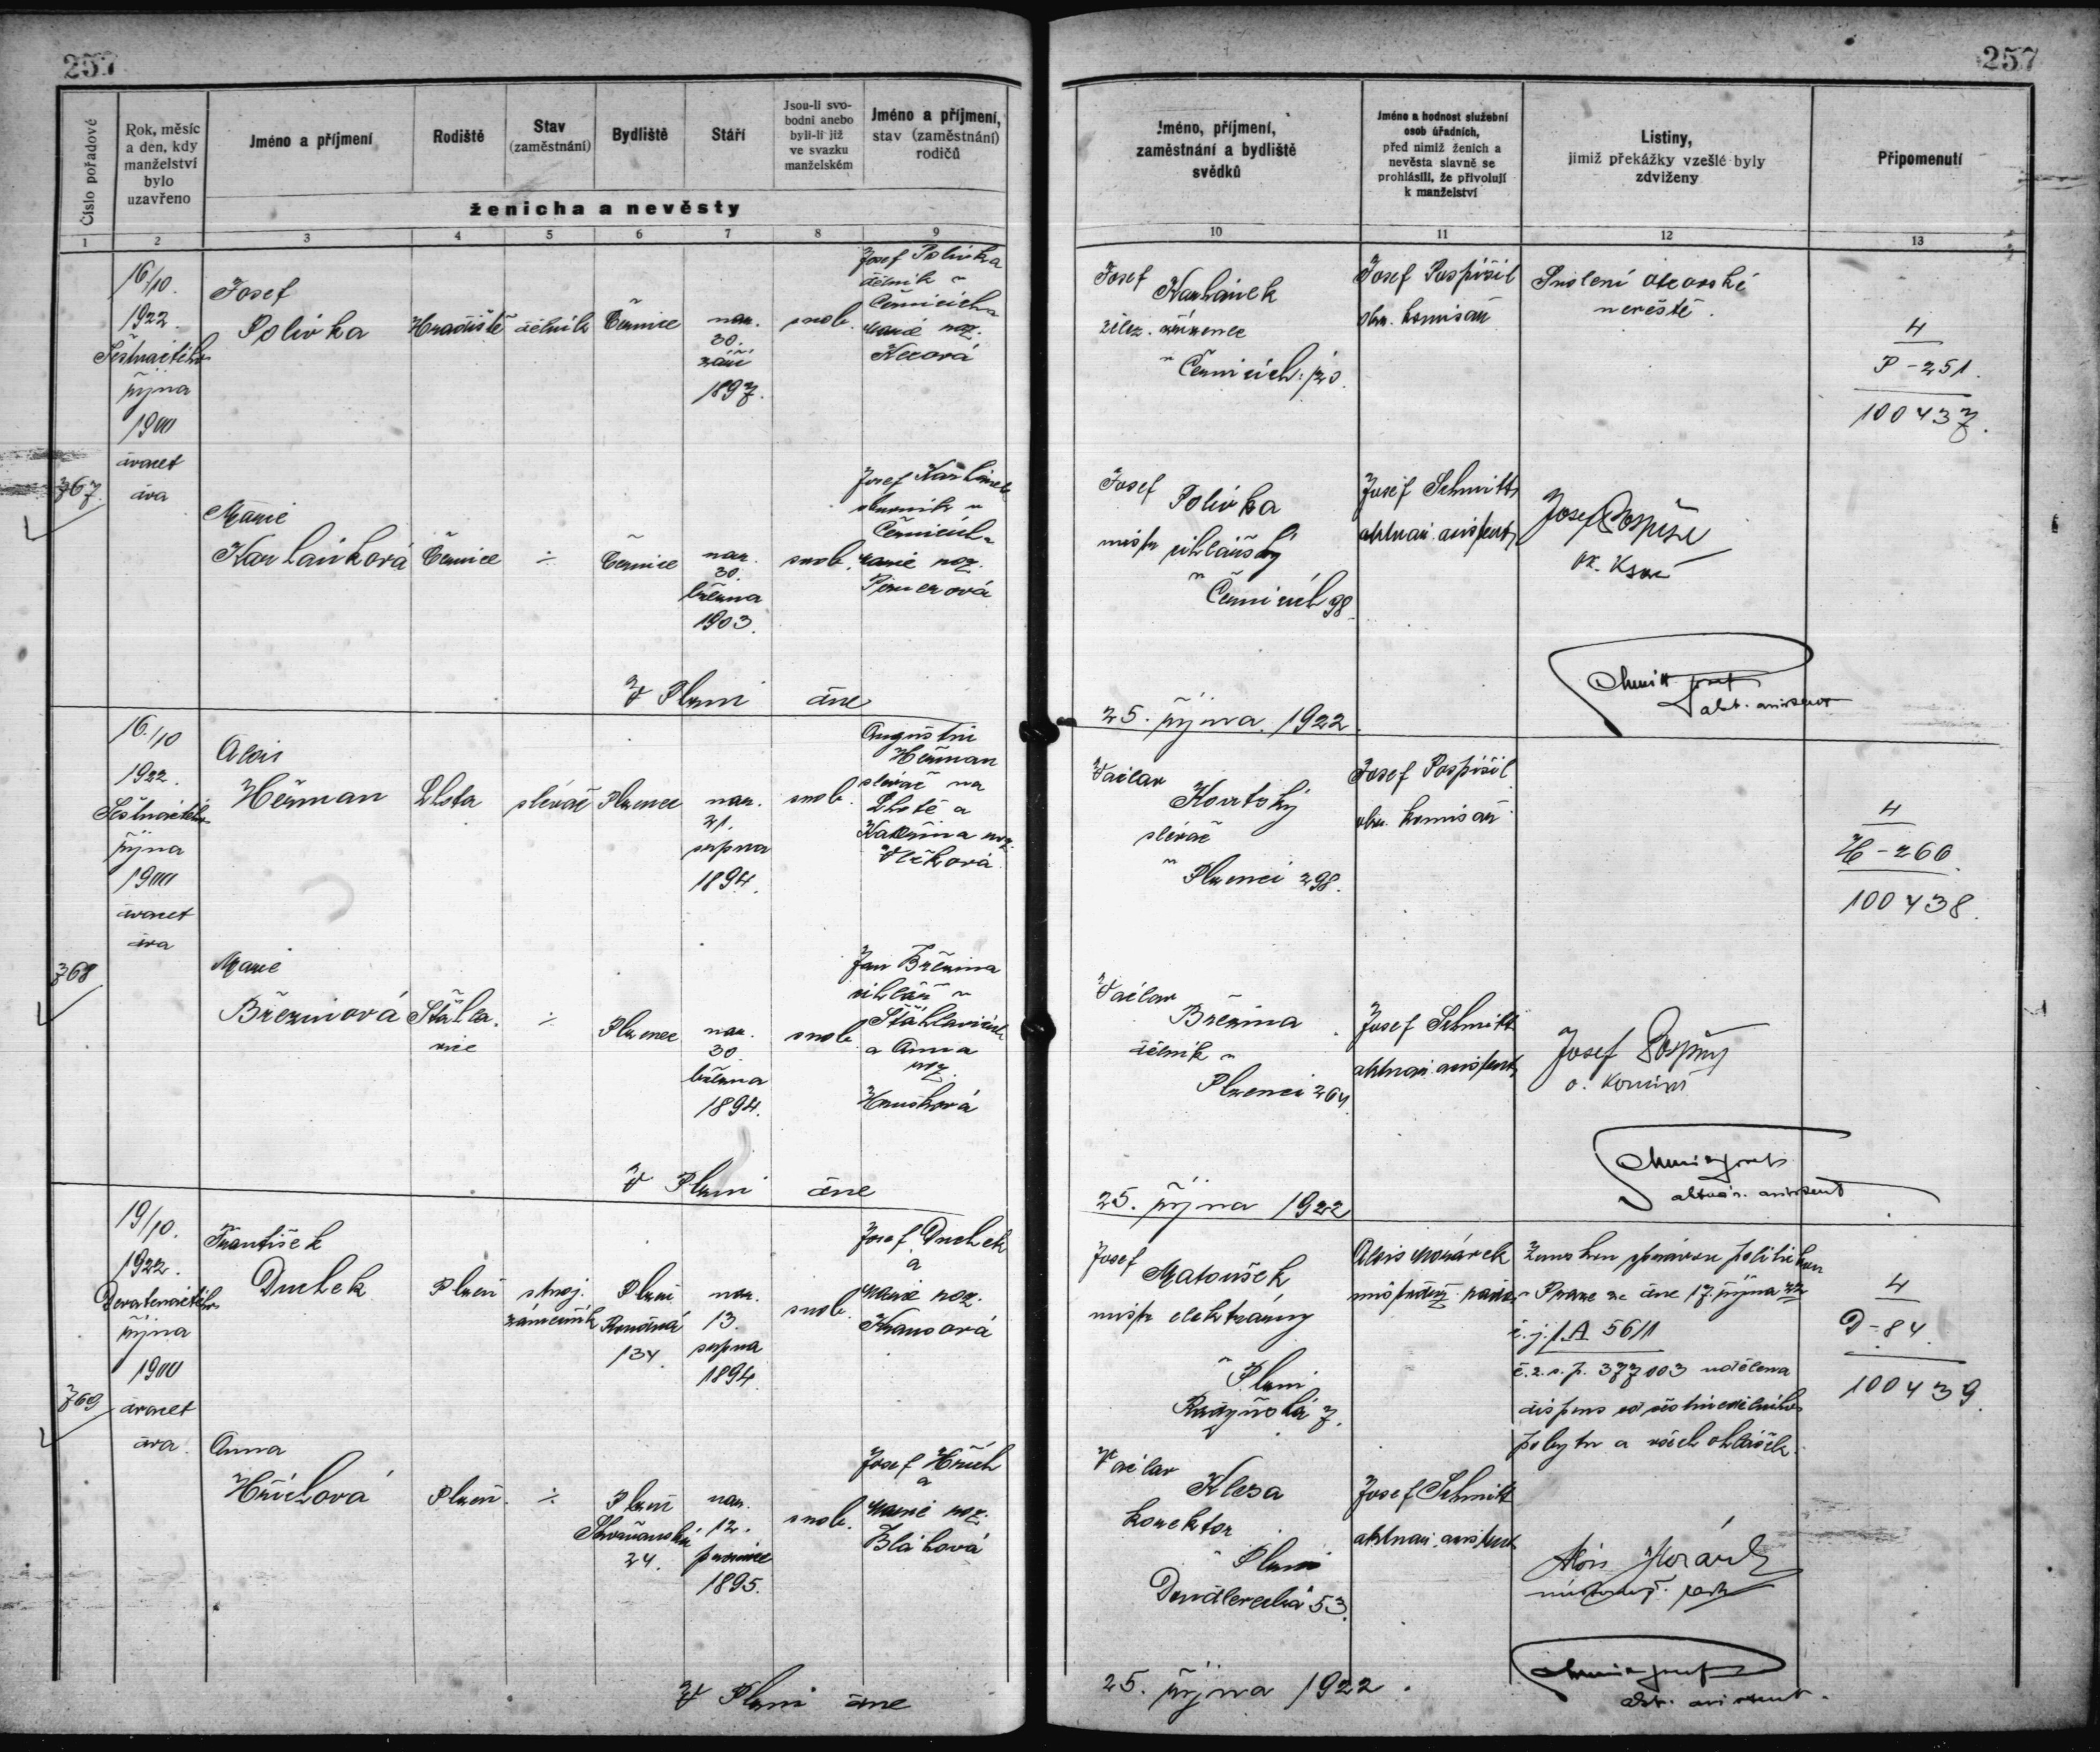 257
257
Číslo pořadové
Rok, měsíc
a den, kdy
manželství
bylo
uzavřeno
Jméno a příjmení
Rodiště
Stav
(zaměstnání)
Bydliště
Stáří
Jsou-li svo-
bodni anebo
byli-li již
ve svazku
manželském
Jméno a příjmení,
stav (zaměstnání)
rodičů
ženicha a nevěsty
1 2 3 4 5 6 7 8 9
Jméno, příjmení,
zaměstnání a bydliště
svědků
Jméno a hodnost služební
osob úředních,
před nimiž ženich a
nevěsta slavně se
prohlásili, že přivolují
k manželství
Listiny,
jimiž překážky vzešlé byly
zdviženy
Připomenutí
10 11 12 13
767.
16/10.
1922.
Šestnáctého
října
1900
dvacet
dva
Josef
Polívka
Hradiště
dělník
Černice
nar.
30.
září
1897.
svob.
Josef Polívka
dělník v
Černicích a
Marie roz.
Marie
Karlánková
Černice
÷
Černice
nar.
30.
března
1903.
svob.
Josef Karlánek
v
Černicích a
Marie roz.
V Plzni dne
Josef
Karlánek
želez. zřízenec
v Černicích 120.
Josef Pospíšil
obv. komisař
Svolení otcovské
nevěstě.
4
P-251.
100437.
Josef
Polívka
mistr cihlářský
v Černicích 98.
Josef Schmitt
aktuár. asistent
Josef Pospíšil
25. října 1922.
Schmitt Josef
akt. asistent
768
16./10
1922.
Šestnáctého
října
1900
dvacet
dva
Alois
Heřman
Lhota
slévač
Plzenec
nar.
21.
srpna
1894.
svob.
Augustin
Heřman
slévač na
Lhotě a
Kateřina roz.
Vlčková
Marie
Březinová
Šťáhla-
vice
÷
Plzenec
nar.
30.
března
1894.
svob.
Jan Březina
cihlář v
Šťáhlavicích
a Anna
roz.
Hrušková
V Plzni dne
Václav
slévač
v Plzenci 298.
Josef Pospíšil
obv. komisař
4
H-266.
100438.
Václav
Březina
dělník v
Plzenci 264
Josef Schmitt
aktuár. asistent
Josef Pospíšil
o. komisař
25. října 1922
Schmitt Josef
aktuár. asistent
769
19/10.
1922.
Devatenáctého
října
1900
dvacet
dva.
František
Duchek
Plzeň
stroj.
zámečník
Plzeň
134.
nar.
13.
srpna
1894
svob.
Josef Duchek
a
Marie roz.
Krausová
Anna
Hřichová
Plzeň.
÷
Plzeň
Skvrňanská
24.
nar.
12.
prosince
1895.
svob.
Josef Hřich
a
Marie roz.
Bláhová
V Plzni dne
Josef
Matoušek
mistr elektrárny
v Plzni
Radyňská 7.
Alois Morávek
místodrž. rada
Zemskou správou politickou
v Praze ze dne 17. října 22
č.j. 1.A 5611
č.z.s.p. 377003 udělena
dispens od šestinedělního
pobytu a všech ohlášek.
4
D-84.
100439.
Václav
Klesa
korektor
v Plzni
53.
Josef Schmitt
aktuár. asistent
Alois Morávek
místodrž. rada
25. října 1922.
Schmitt Josef
akt. asistent.